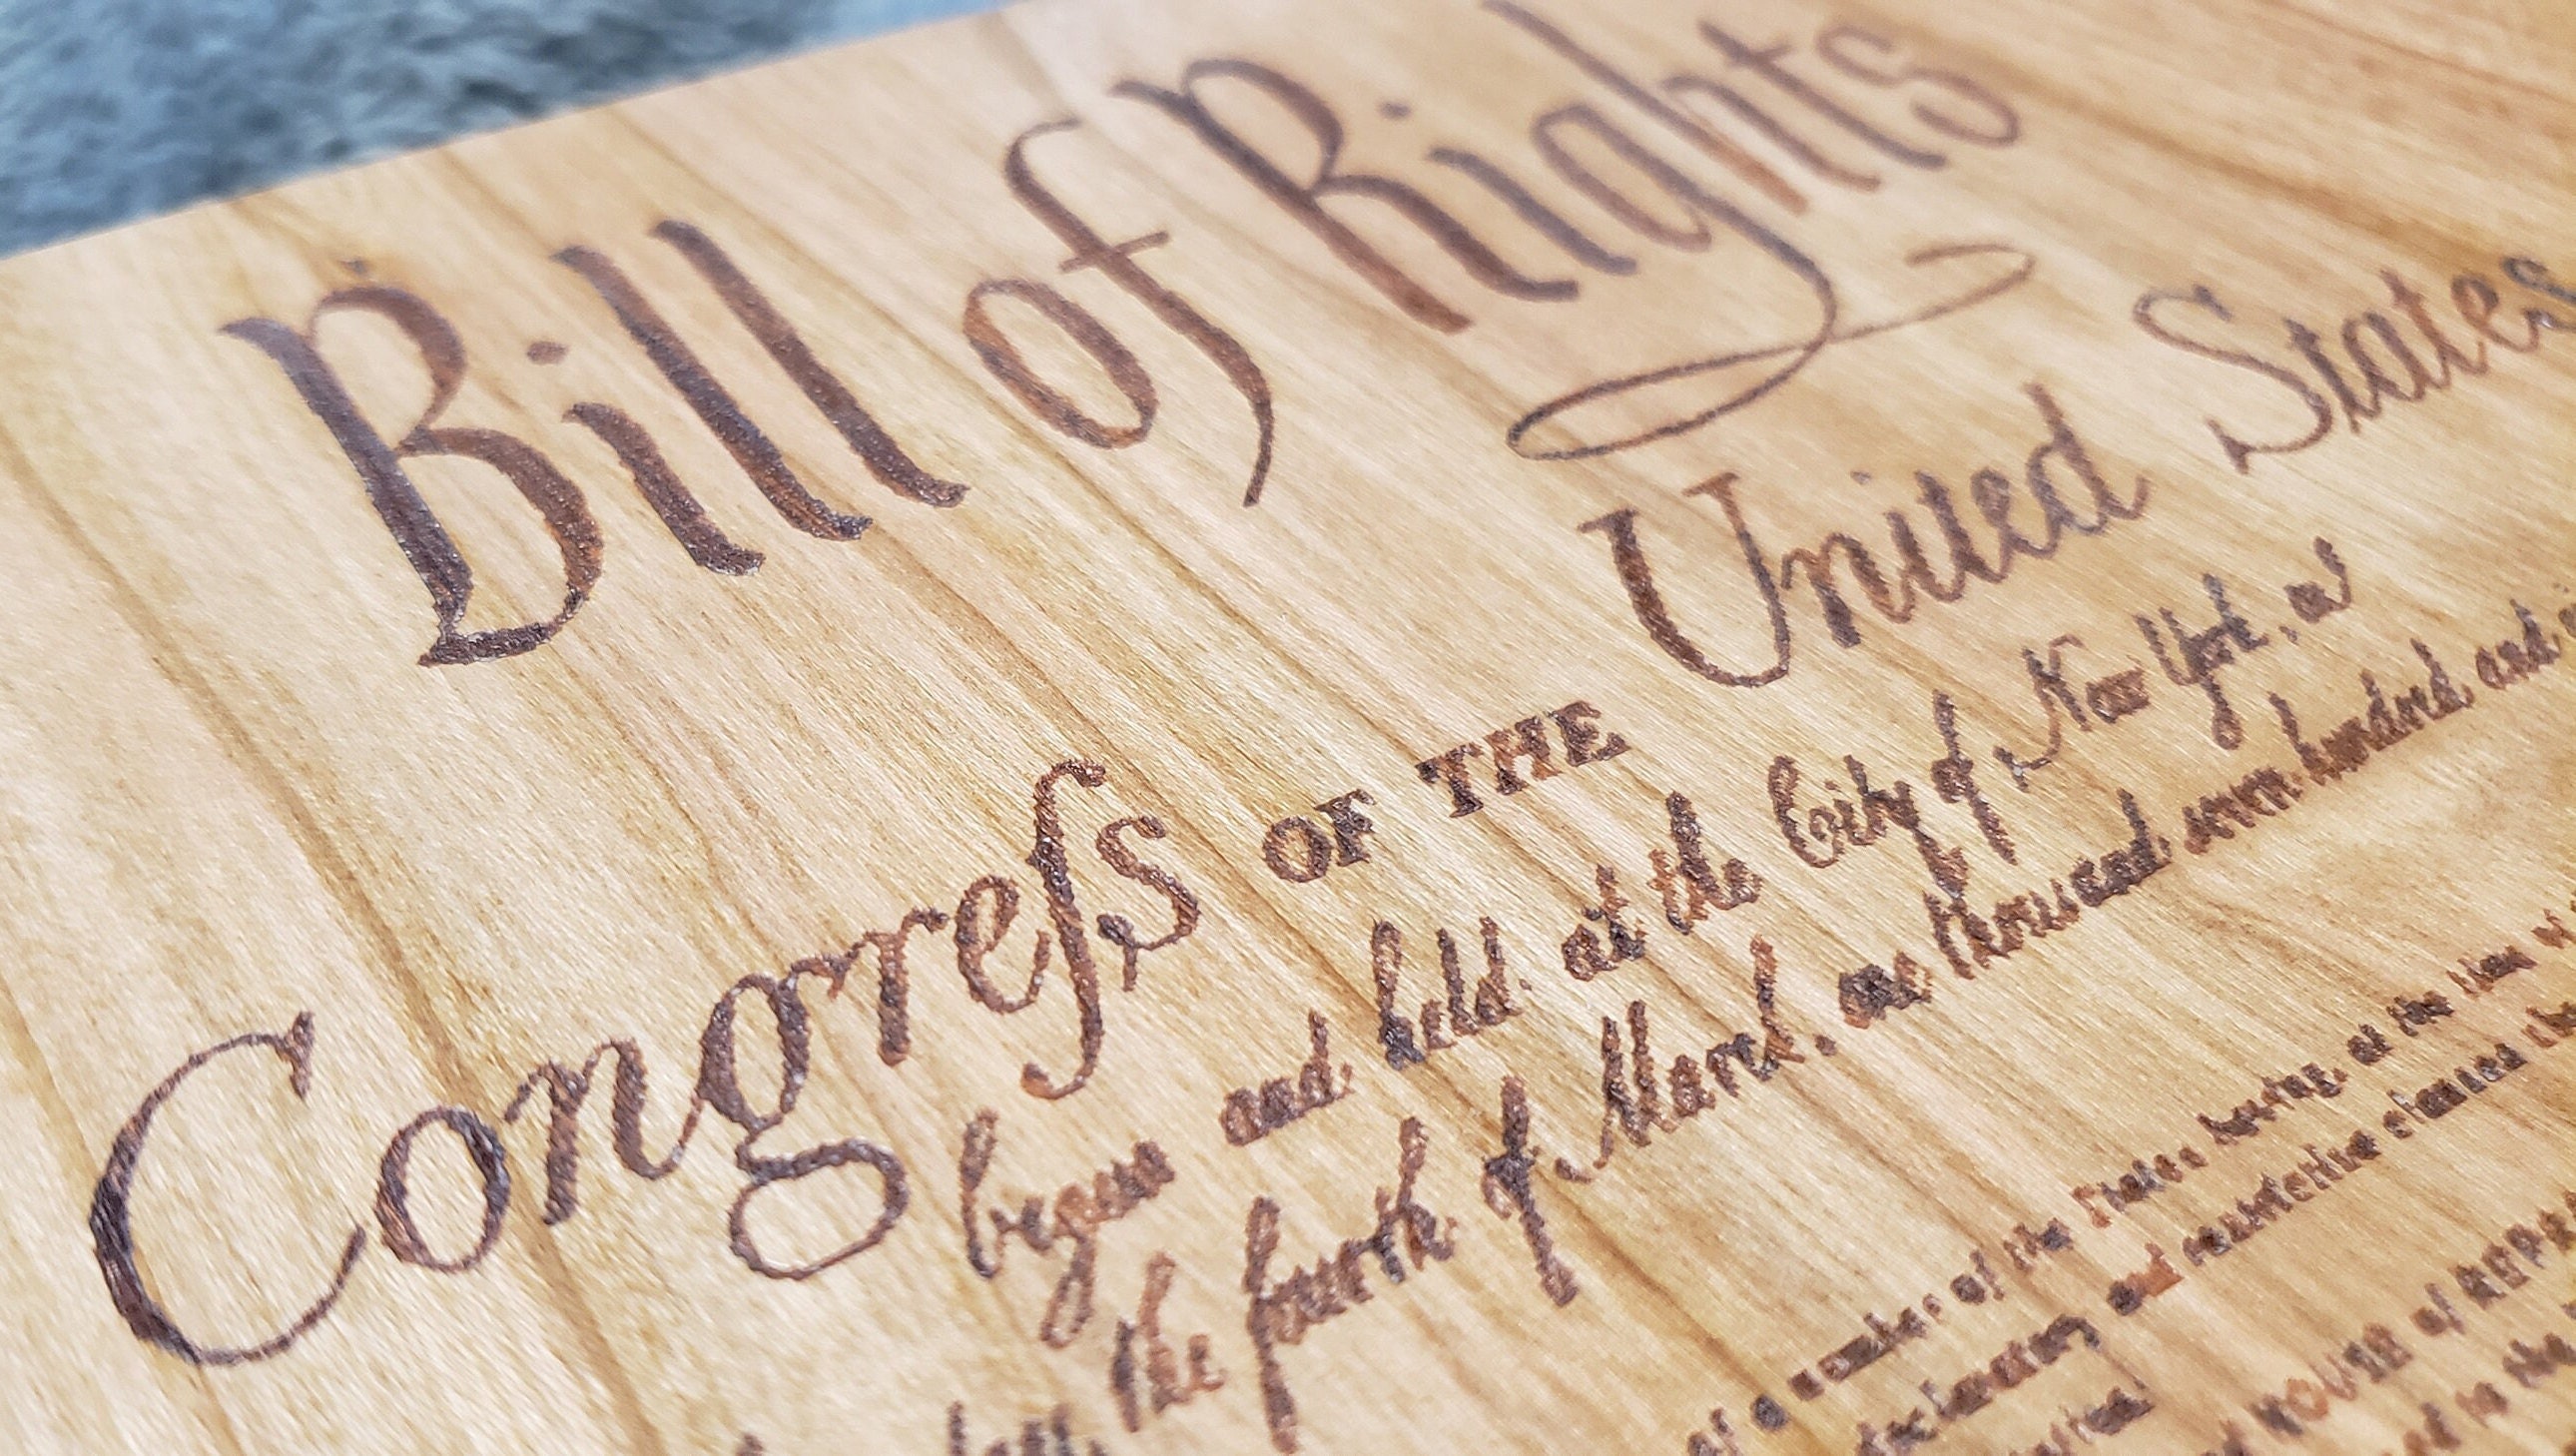 Bill of Rights
Congreſs OF THE United States
begun and held at the City of New York, on
the fourth of March, one thousand seven hundred and
number of the States having at the time of
declaratory and restrictive clauses
House of